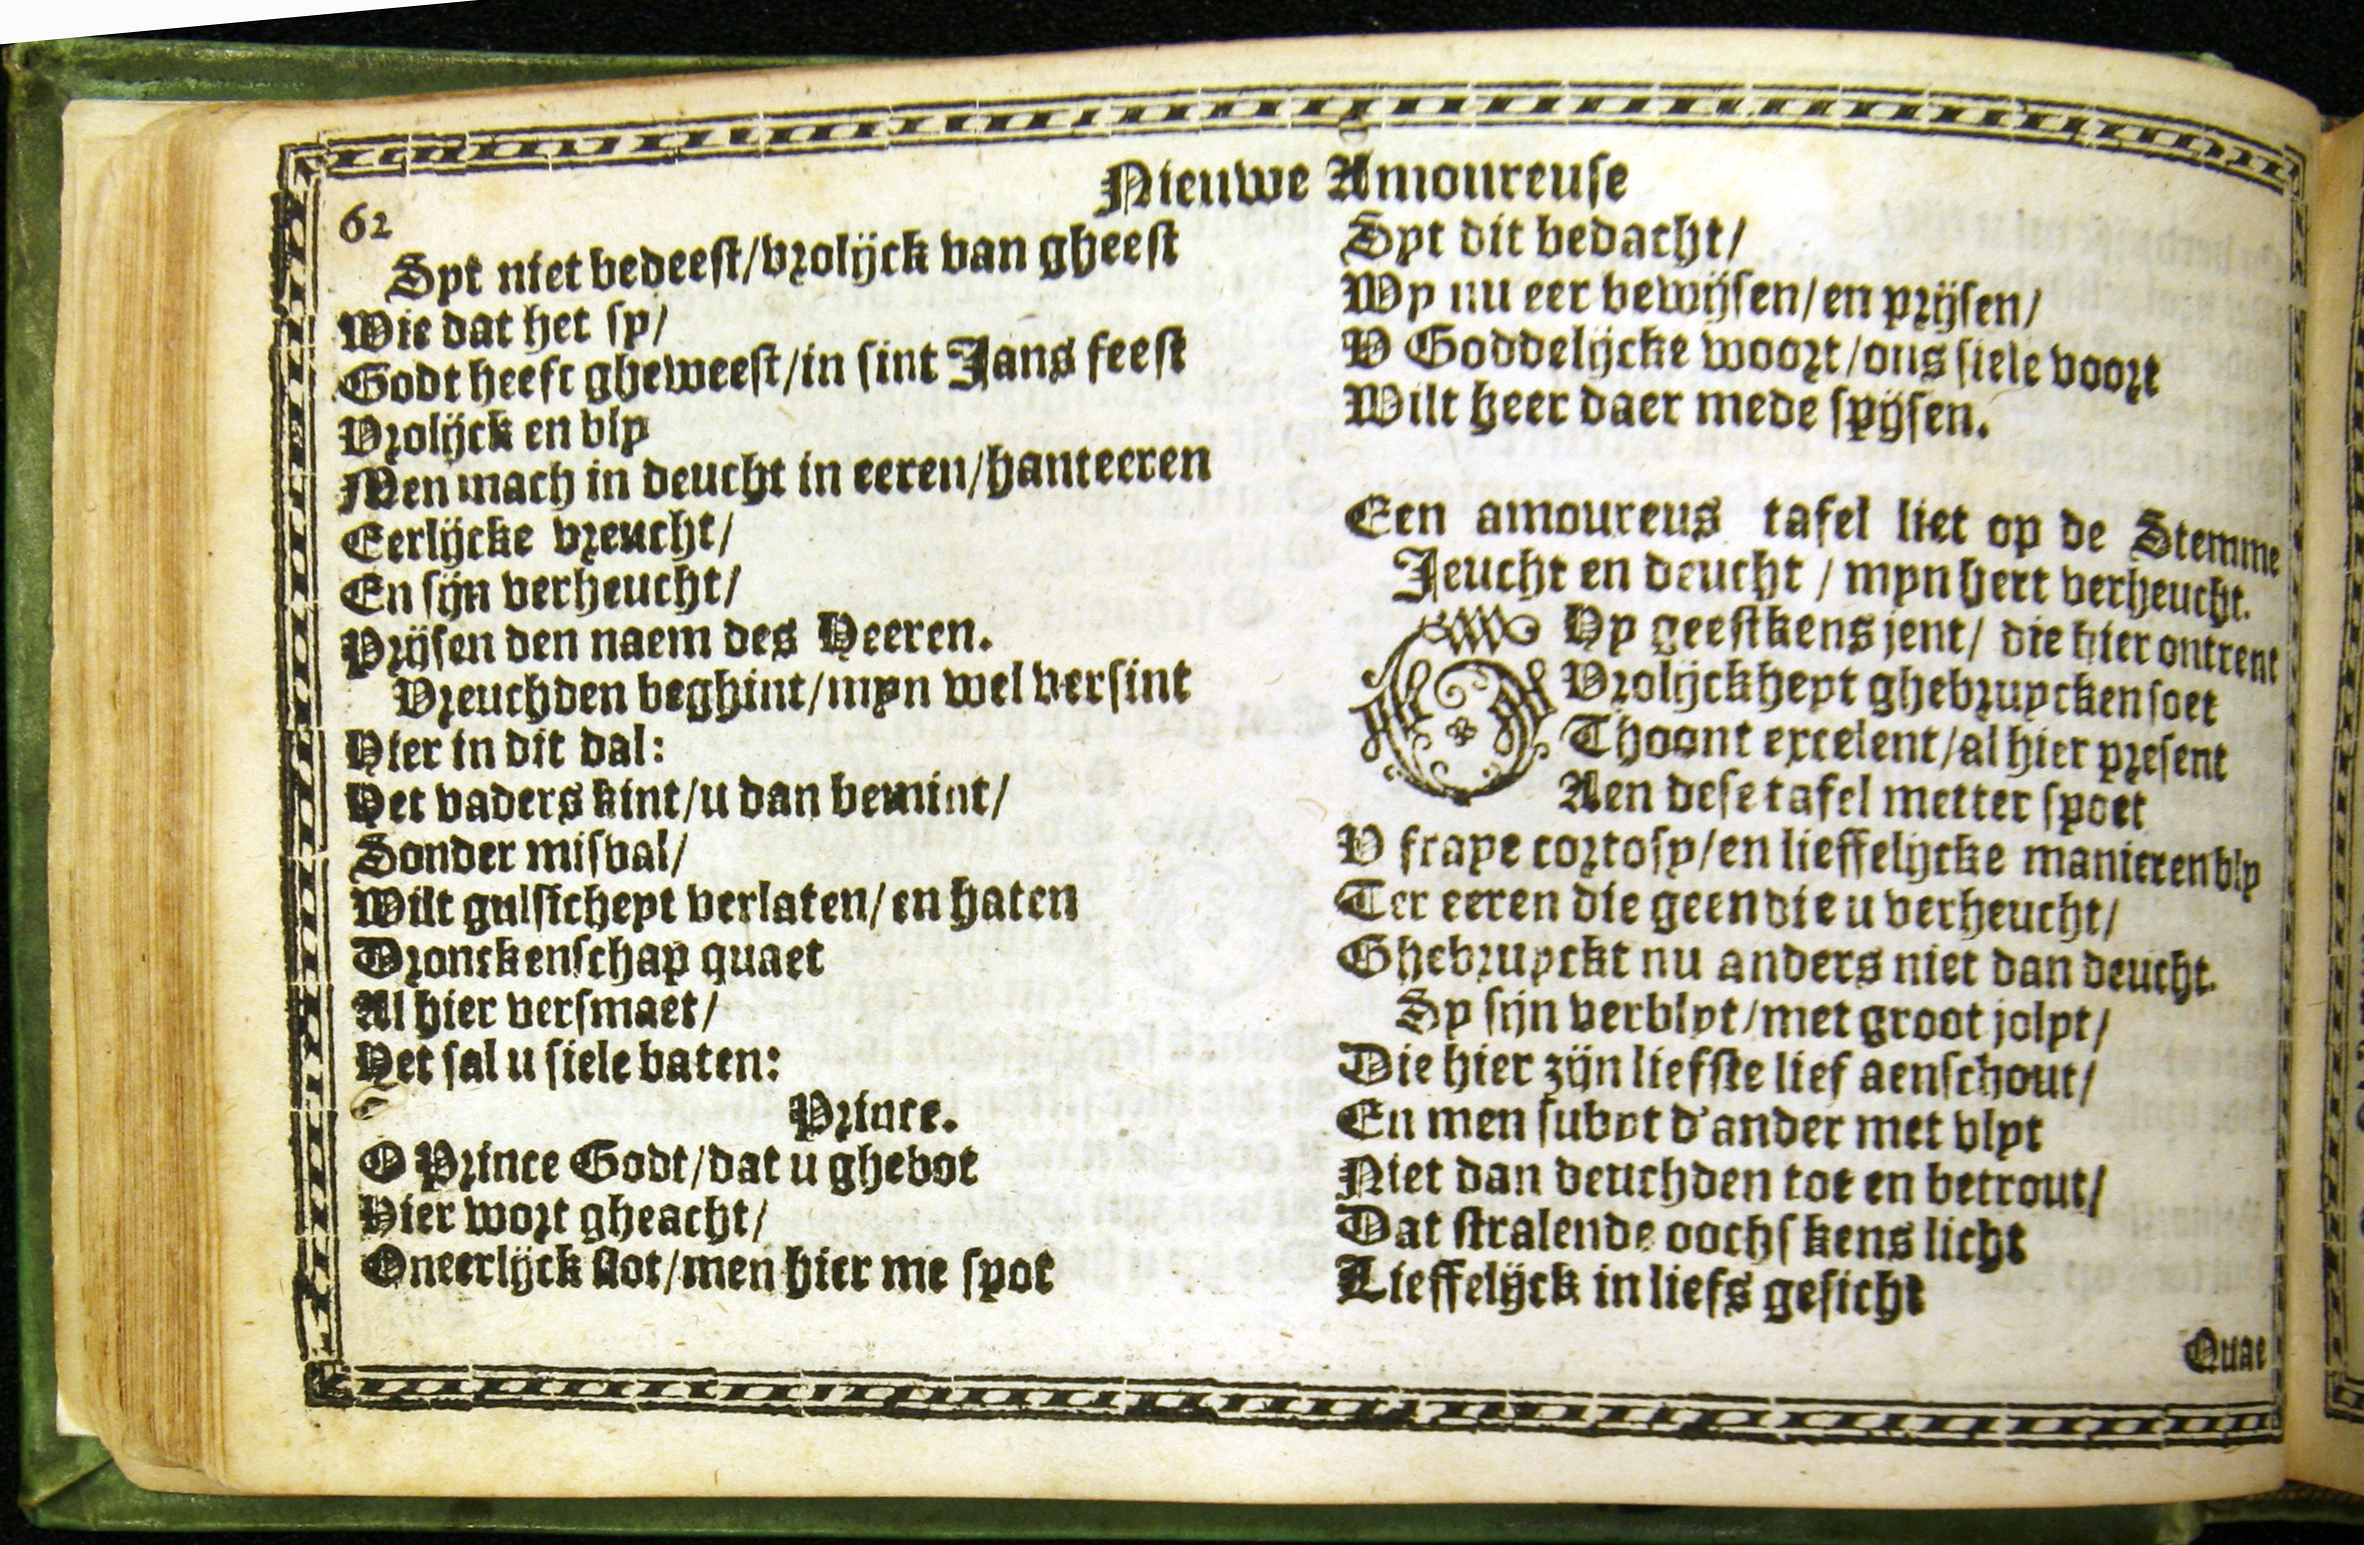 Nieuwe Amoureuse
62
Syt niet bedeest/vrolijck van gheest
Wie dat het sy/
Godt heeft gheweest/in sint Jans feest
Vrolijck en bly
Men mach in deucht in eeren/hanteeren
Eerlijcke vreucht/
En sijn verheucht/
Prijsen den naem des Heeren.
Vreuchden beghint/myn wel versint
Hier in dit dal:
Het vaders kint/u dan bemint/
Sonder misval/
Wilt gulsicheyt verlaten/en haten
Dronckenschap quaet
Al hier versmaet/
Het sal u siele baten:
Prince.
O Prince Godt/dat u ghebot
Hier wort gheacht/
Oneerlijck slot/men hier me spot
Syt dit bedacht/
Wy nu eer bewijsen/en prijsen/
V Goddelijcke woort/ons siele voort
Wilt heer daer mede spijsen.
Een amoureus tafel liet op de Stemme
Jeucht en deucht / myn hert verheucht.
GHy geestkens jent/ die hier ontrent
Vrolijckheyt ghebruycken soet
Thoont excelent/al hier present
Aen dese tafel metter spoet
V fraye cortosy/en lieffelijcke manieren bly
Ter eeren die geen die u verheucht/
Ghebruyckt nu anders niet dan deucht.
Sy sijn verblyt/met groot jolyt/
Die hier zijn liefste lief aenschout/
En men subyt d'ander met vlyt
Niet dan deuchden toe en betrout/
Dat stralende oochskens licht
Lieffelijck in liefs gesicht
Quae